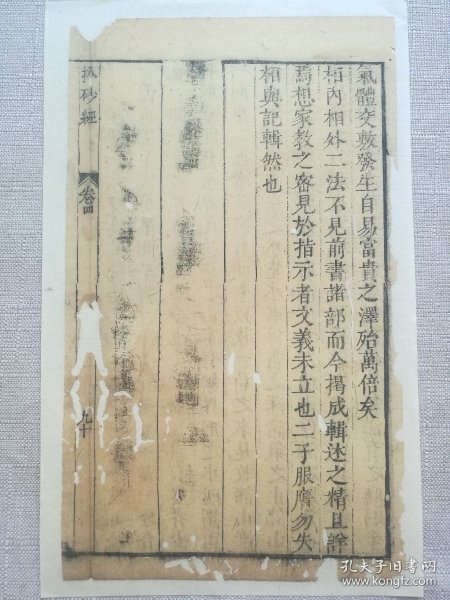 氣體交敷發生自易富貴之澤殆萬倍矣
相內相外二法不見前書諸部而今揭成輯述之精且詳
焉想家教之密見於指示者文義未立也二子服膺勿失
相與記輯然也
扒砂經
卷四
九十
孔夫子旧书网
www.kongfz.com